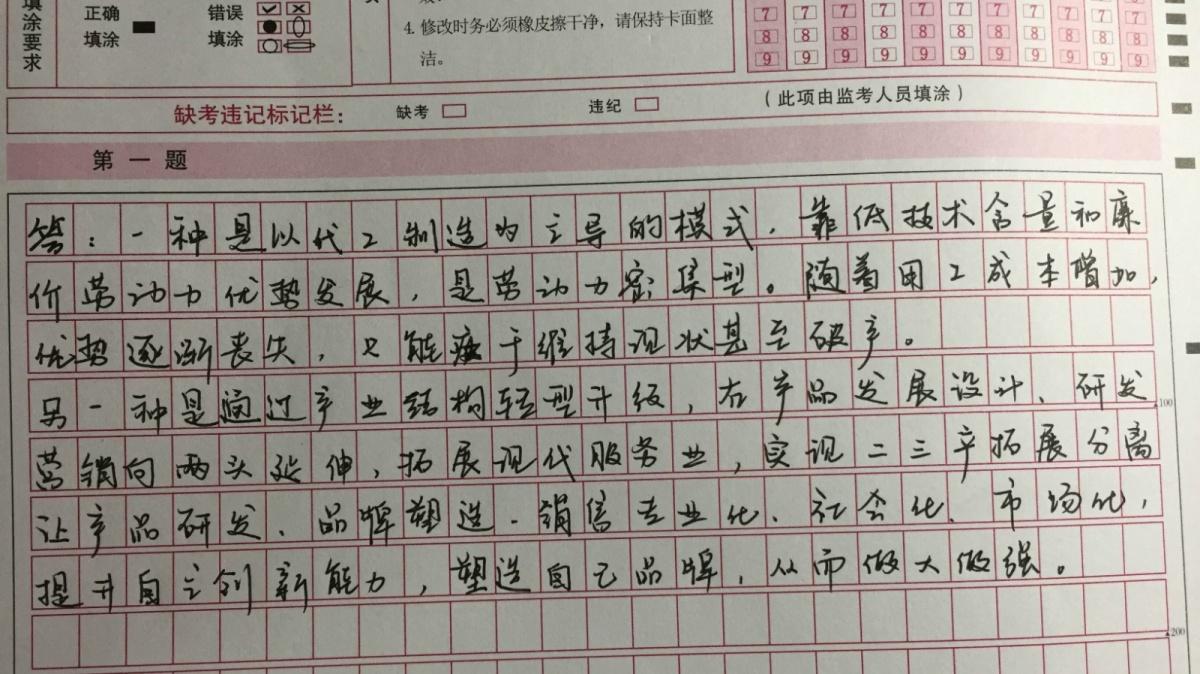 填涂要求
正确填涂
错误填涂
4. 修改时务必须橡皮擦干净，请保持卡面整洁。
7 7 7 7 7 7 7 7 7 7
8 8 8 8 8 8 8 8 8 8
9 9 9 9 9 9 9 9 9 9
缺考违记标记栏： 缺考 违纪 （此项由监考人员填涂）
第一题
答：一种是以代工制造为主导的模式，靠低技术含量和廉
价劳动力优势发展，是劳动力密集型。随着用工成本增加，
优势逐渐丧失，只能疲于维持现状甚至破产。
另一种是通过产业结构转型升级，在产品发展设计、研发
100
营销向两头延伸，拓展现代服务业，实现二三产拓展分离
让产品研发、品牌塑造、销售专业化、社会化、市场化，
提升自主创新能力，塑造自己品牌，从而做大做强。
200